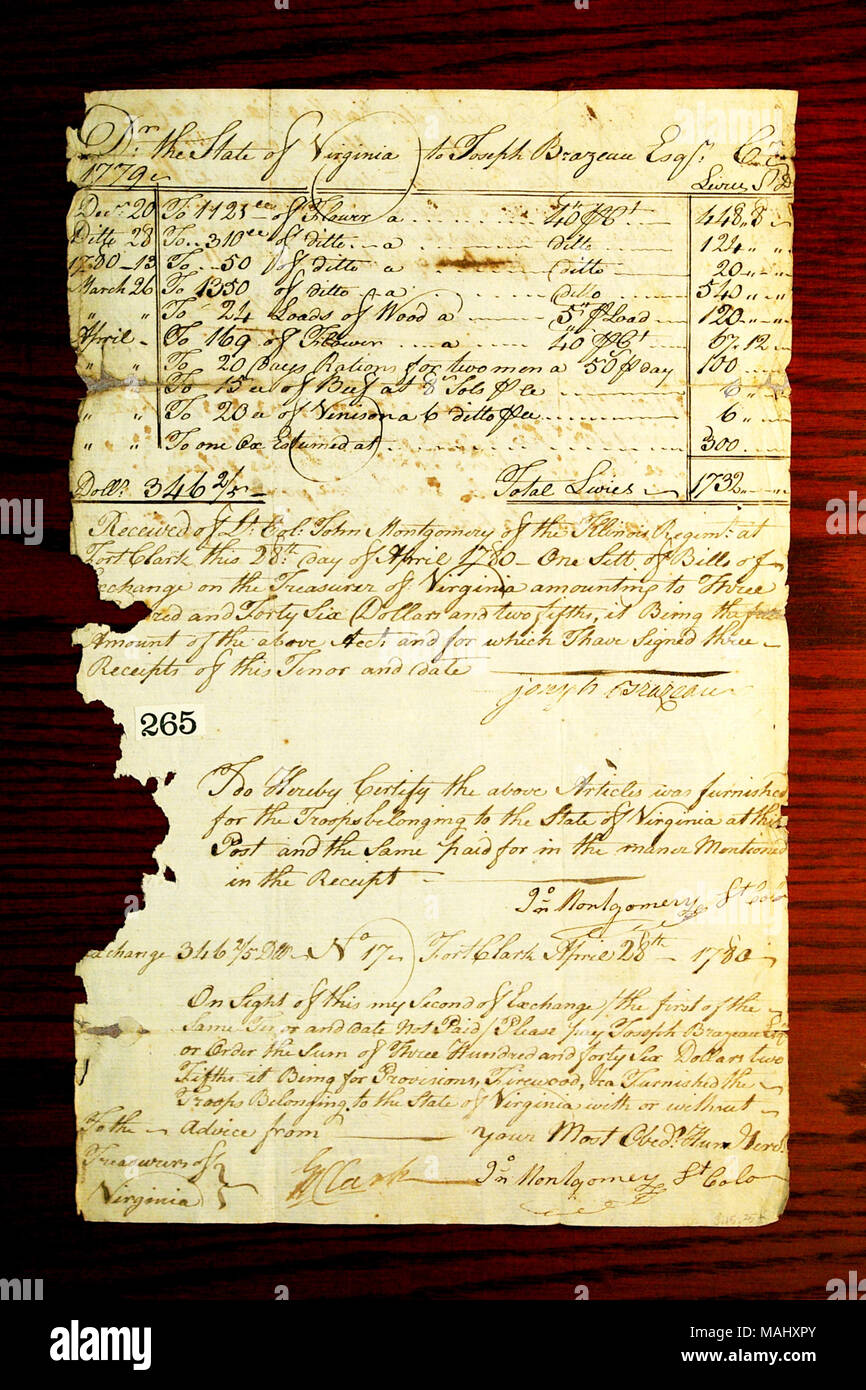 Dr. the State of Virginia to Joseph Brazeau Esqr. Cr.
1779 Livres S D
Decr. 20 To 1121 of Flower a 40# Ct 448 " 8
Ditto 28 To 310 of ditto a ditto 124 " "
1780 13 To 50 of ditto a ditto 20 " "
March 26 To 1350 of ditto a ditto 540 " "
" " To 24 Loads of Wood a 5# Load 120 " "
April To 169 of Flower a 40# Ct 67 " 12
" " To 20 Days Rations for two men a 50 day 100
To 15 of Beef at 8 Sols 6
" " To 20 of Venison a 6 ditto 6
" " To one Ox Estimed at 300
Dollrs. 346 2/5 Total Livres 1732
Received of Lt. Col: John Montgomery of the Illinois Regimt. at
Fort Clark this 28th. day of April 1780 One Sett of Bills of
Exchange on the Treasurer of Virginia amounting to Three
red and Forty Six Dollars and two fifths, it Being the full
Amount of the above Acct. and for which I have Signed three
Receipts of this Tenor and date
Joseph Brazeau
265
I do Hereby Certify the above Articles was furnished
for the Troops belonging to the State of Virginia at this
Post and the Same paid for in the maner Mentioned
in the Receipt
Jno Montgomery Lt Colo
xchange 346 2/5 Dllr No 17 Fort Clark April 28th 1780
On Sight of this my Second of Exchange / the first of the
Same Tenor and date Not Paid / Please pay Joseph Brazeau Esqr
or Order the Sum of Three Hundred and forty Six Dollars two
Fifths it Being for Provisions, Firewood, &ca Furnished the
Troops Belonging to the State of Virginia with or without
To the Advice from your Most Obedt. Hum
Treasurers of
Virginia
GR Clark Jno Montgomery Lt Colo
a alamy stock photo
alamy
Image ID: MAHXPY
www.alamy.com